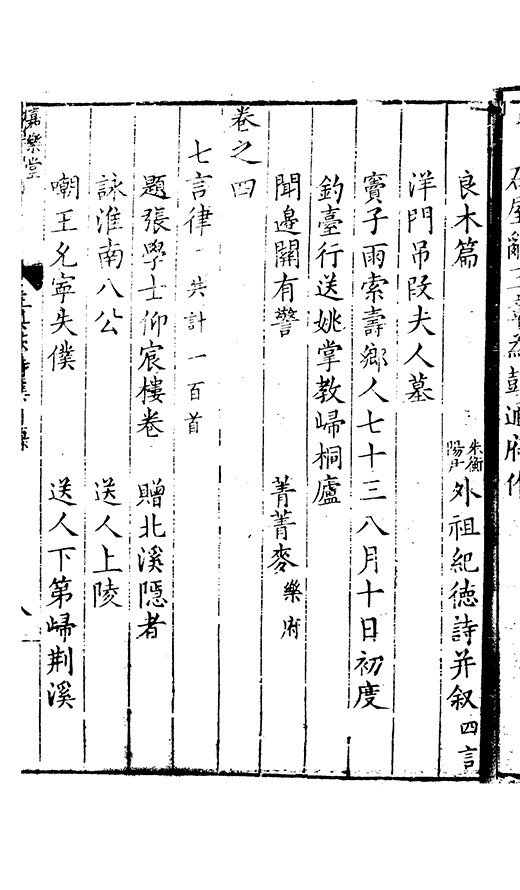 良木篇　朱衡陽尹外祖紀德詩并叙四言
洋門吊段夫人墓
竇子雨索壽鄉人七十三八月十日初度
釣臺行送姚掌教歸桐廬
聞邊關有警　菁菁麥樂府
卷之四
七言律共計一百首
題張學士仰宸樓卷　贈北溪隱者
詠淮南八公　送人上陵
嘲王允寧失僕　送人下第歸荆溪
嘉樂堂
八